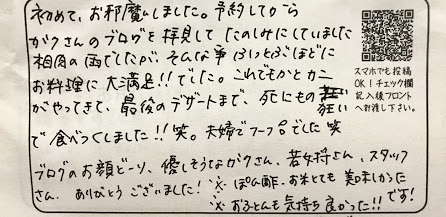 初めて、お邪魔しました。予約してから
がクさんのブログを拝見してたのしみにしていました
相肉の雨でしたが、そんな事ふっとぶほどに
お料理に大満足!!でした。これでもかとカニ
がやってきて、最後のデザートまで、死にもの狂い
で食べつくしました!!笑。夫婦でフーフーでした 笑
ブログのお顔どーり、優しそうながクさん、若女将さん、スタッフ
さん、ありがとうございました! ※ ぽん酢、お米とても美味しかった
※ おふとんも気持ち良かった!!です!
スマホでも投稿
OK!チェック欄
記入後フロント
へお渡し下さい。